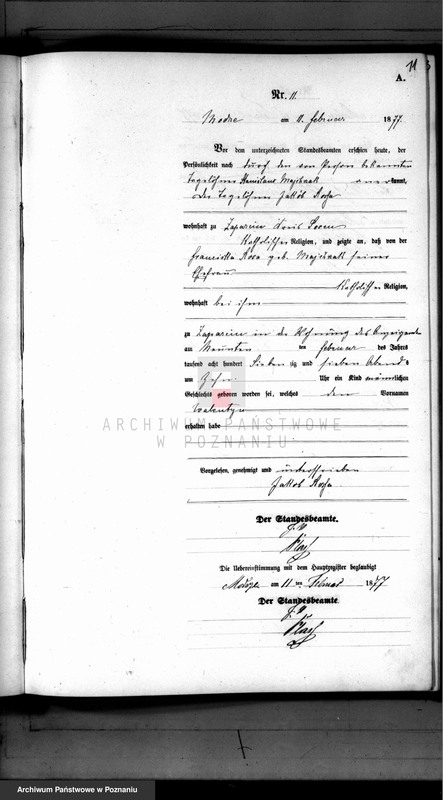 11
A.
Nr. 11
Modze am 11. Februar 1877
Vor dem unterzeichneten Standesbeamten erschien heute, der
Persönlichkeit nach durch den von Person bekannten
Tagelöhner Stanislaus Majchrzak anerkannt,
der Tagelöhner Jakob Kosa
wohnhaft zu Kreis
Katholischer Religion, und zeigte an, daß von der
Franciska Kosa geb. Majchrzak seiner
Ehefrau
Katholischer Religion,
wohnhaft bei ihm
zu in der Wohnung des Anzeigende
am Neunten ten Februar des Jahres
tausend acht hundert Sieben zig und sieben Abends
um Zehn Uhr ein Kind männlichen
Geschlechts geboren worden sei, welches den Vornamen
Valentyn
erhalten habe
ARCHIWUM PAŃSTWOWE
W POZNANIU
Vorgelesen, genehmigt und unterschrieben
Jakob Kosa
Der Standesbeamte.
Die Uebereinstimmung mit dem Hauptregister beglaubigt
am 11 ten Februar 1877
Der Standesbeamte.
Archiwum Państwowe w Poznaniu